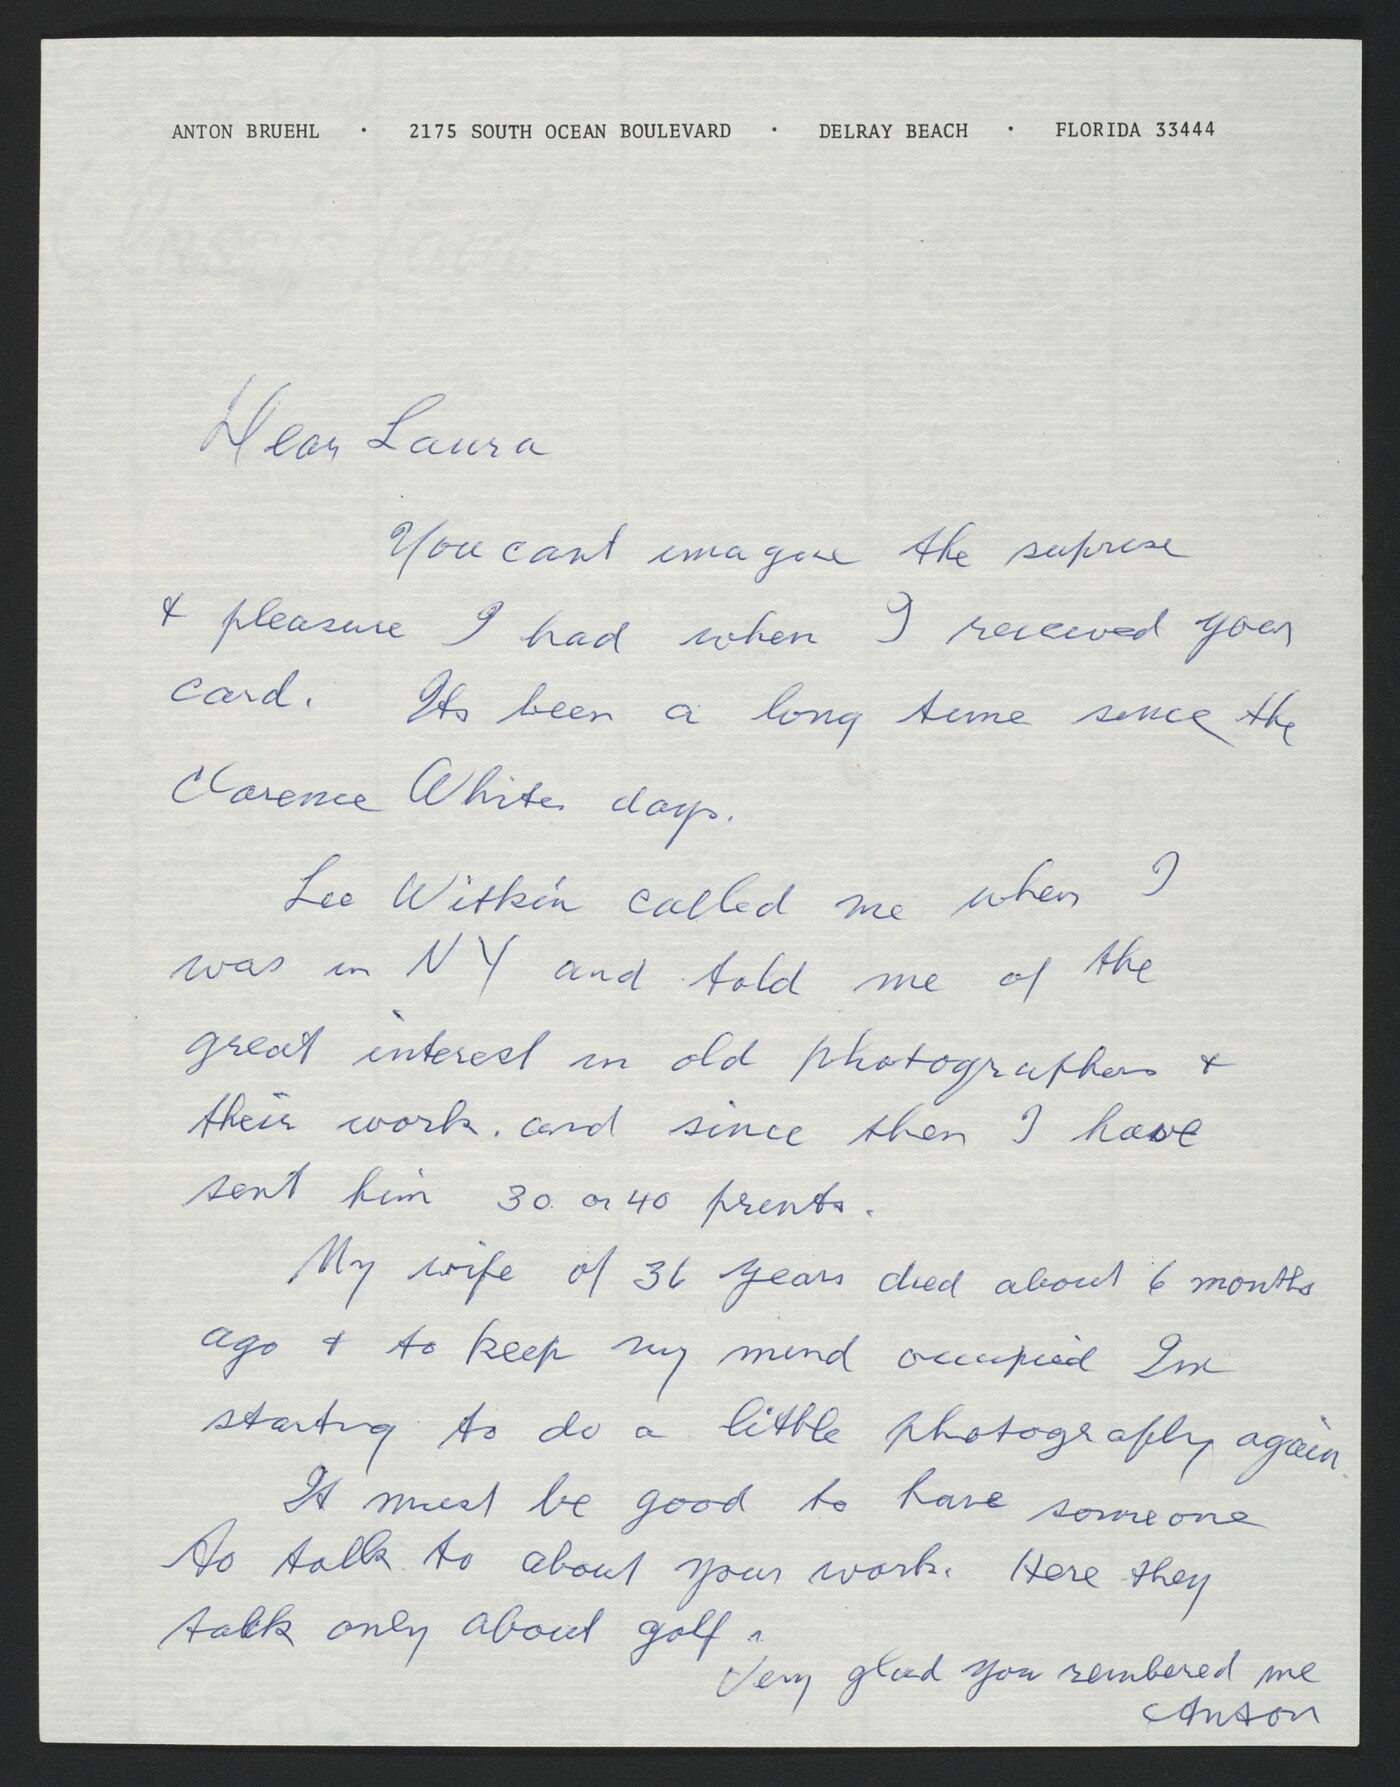 ANTON BRUEHL · 2175 SOUTH OCEAN BOULEVARD · DELRAY BEACH · FLORIDA 33444
Dear Laura
You cant imagine the suprise
& pleasure I had when I received your
card. Its been a long time since the
Clarence White days.
Lee Witkin called me when I
was in NY and told me of the
great interest in old photographers &
their work. and since then I have
sent him 30 or 40 prints.
My wife of 36 years died about 6 months
ago & to keep my mind occupied Im
starting to do a little photography again.
It must be good to have someone
to talk to about your work. Here they
talk only about golf.
Very glad you rembered me
Anton